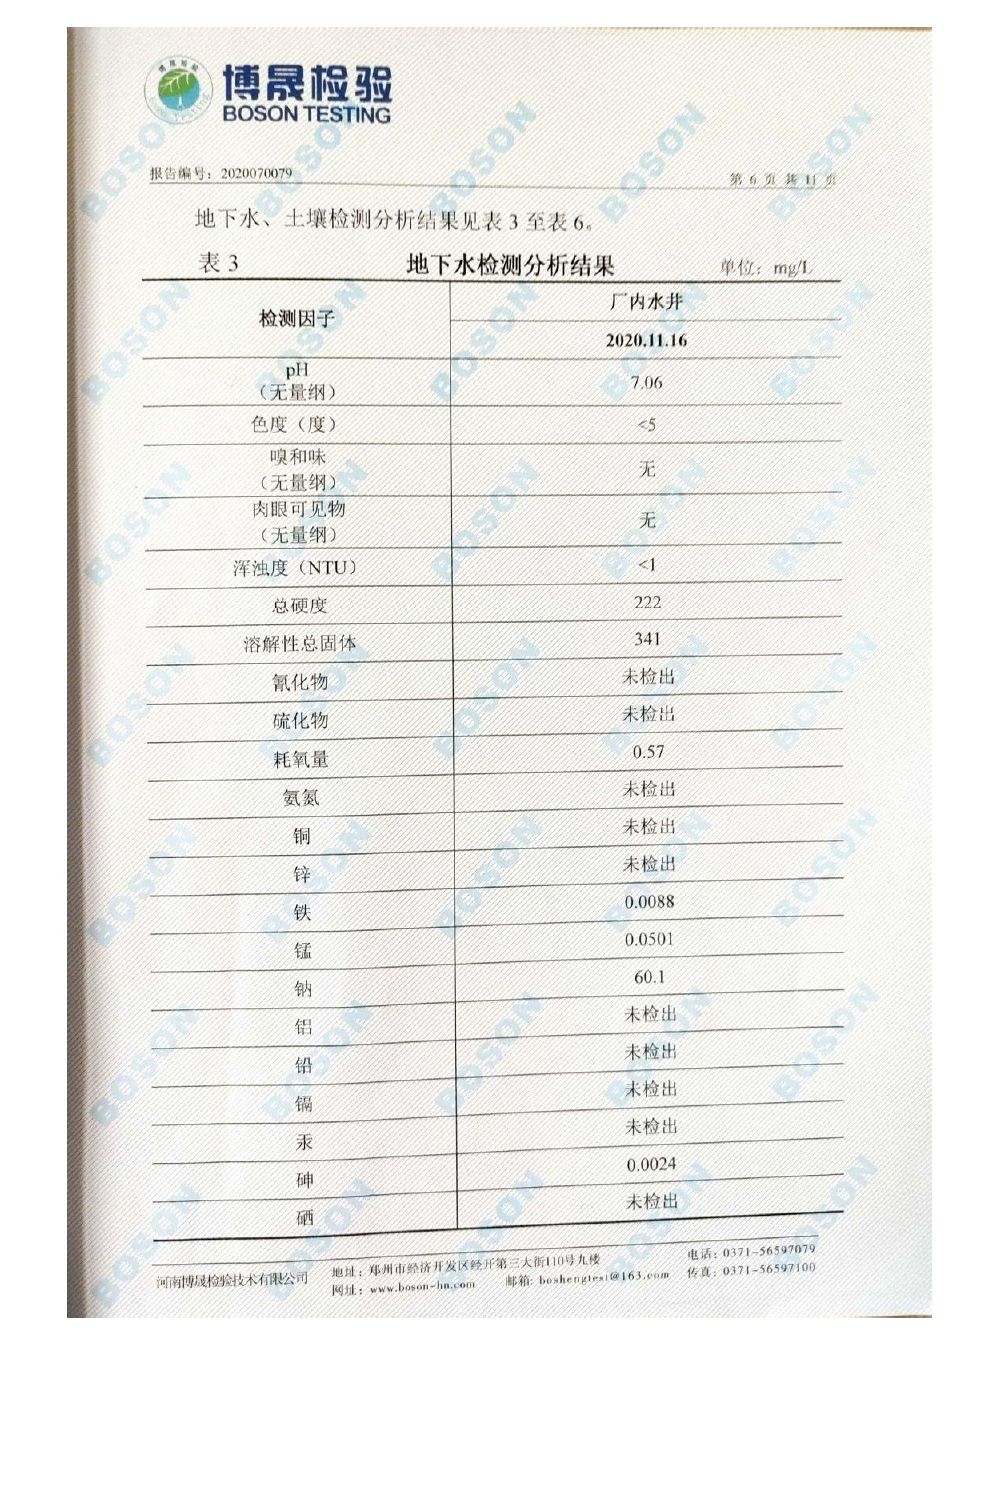 博晟检验
博晟检验
BOSON TESTING
BOSON TESTING
报告编号：2020070079
第 6 页 共 11 页
地下水、土壤检测分析结果见表 3 至表 6。
表 3 地下水检测分析结果 单位：mg/L
检测因子 厂内水井
2020.11.16
pH
（无量纲） 7.06
色度（度） <5
嗅和味
（无量纲） 无
肉眼可见物
（无量纲） 无
浑浊度（NTU） <1
总硬度 222
溶解性总固体 341
氰化物 未检出
硫化物 未检出
耗氧量 0.57
氨氮 未检出
铜 未检出
锌 未检出
铁 0.0088
锰 0.0501
钠 60.1
铝 未检出
铅 未检出
镉 未检出
汞 未检出
砷 0.0024
硒 未检出
河南博晟检验技术有限公司
地址：郑州市经济开发区经开第三大街110号九楼
网址：www.boson-hn.com 邮箱: boshengtest@163.com
电话：0371-56597079
传真：0371-56597100